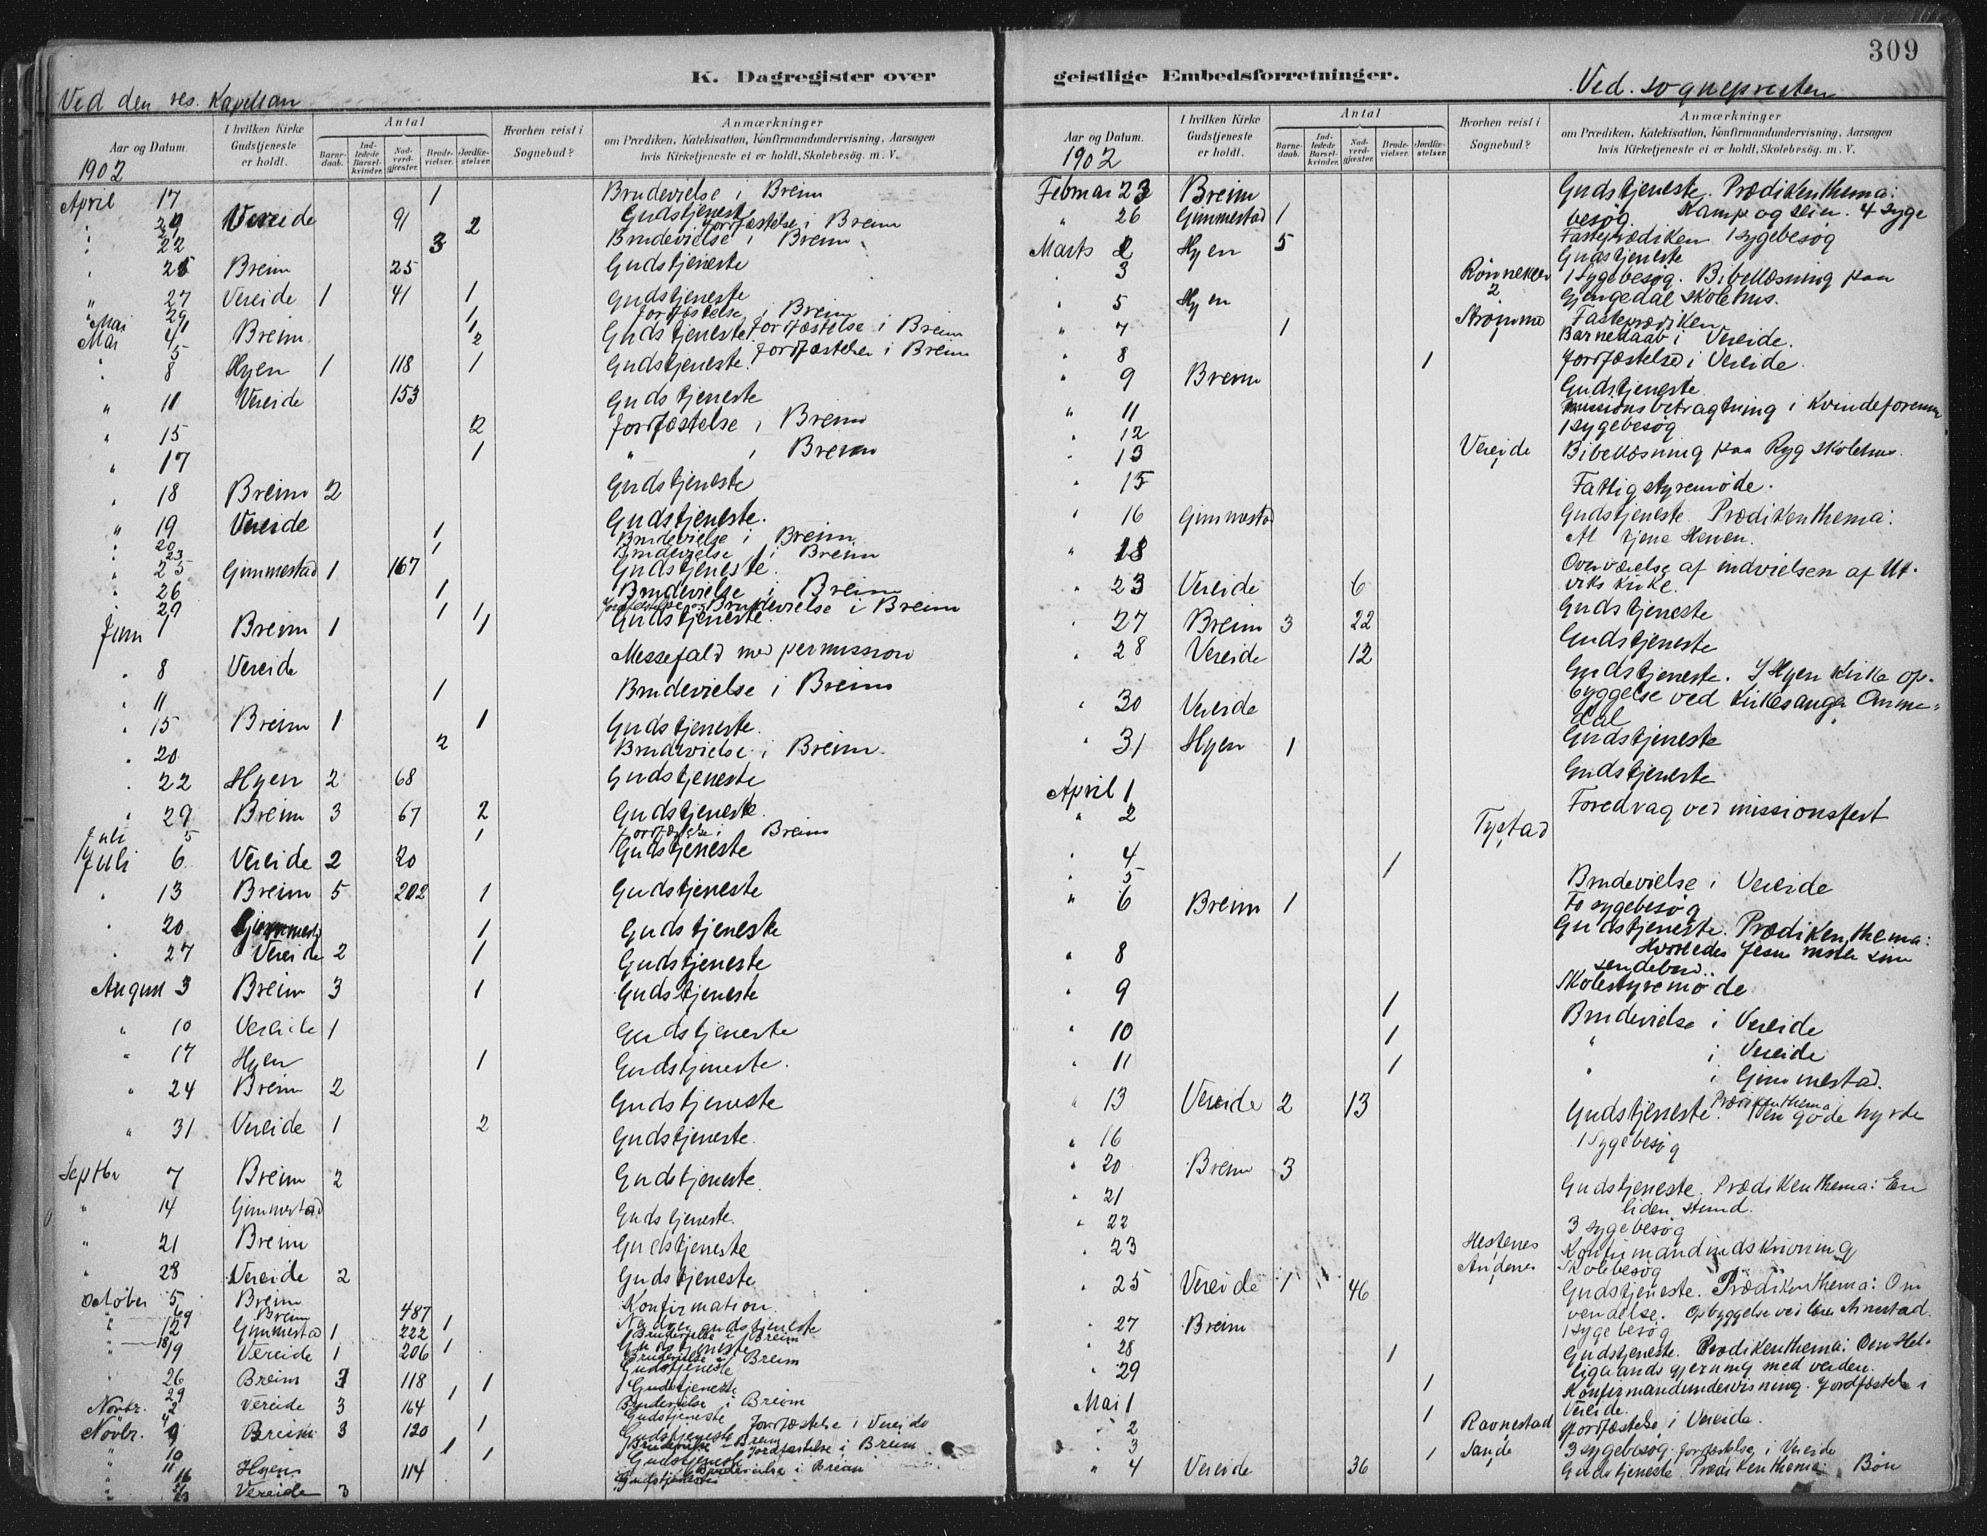 309
K. Dagregister over
geistlige Embedsforretninger.
Ved den res. Kapellan
Aar og Datum.
I hvilken Kirke Gudstjeneste er holdt.
Antal
Barnedaab.
Indledede Barselkvinder.
Nadverdgjester.
Brudevielser.
Jordfæstelser.
Hvorhen reist i Sognebud?
Anmærkninger
om Prædiken, Katekisation, Konfirmandundervisning, Aarsagen
hvis Kirketjeneste ei er holdt, Skolebesøg. m. V.
1902
April 17 1 Brudevielse i Breim
" 20 Vereide 91 2 Gudstjeneste Jordfæstelse i Breim
" 22 3 Brudevielse i Breim
" 25 Breim 25 Gudstjeneste
" 27 Vereide 1 41 1 Gudstjeneste
" 29 1 Jordfæstelse i Breim
Mai 1 1 Jordfæstelse i Breim
Mai 4 Breim 2 Gudstjeneste
5 Jordfæstelse i Breim
" 8 Hyen 1 118 1 Gudstjeneste.
" 11 Vereide 153 Gudstjeneste
" 15 2 Jordfæstelse i Breim
" 17 1 " i Breim
" 18 Breim 2 Gudstjeneste
" 19 Vereide Gudstjeneste.
" 20 1 Brudevielse i Breim
" 23 1 Brudevielse i Breim
" 25 Gimmestad 1 167 Gudstjeneste.
" 26 1 Brudevielse i Breim
" 29 1 1 Jordfæstelse og Brudevielse i Breim
Juni 1 Breim 1 1 Gudstjeneste.
" 8 Vereide Messefald med permission
" 11 1 Brudevielse i Breim
" 15 Breim 1 1 Gudstjeneste.
" 20 2 Brudevielse i Breim.
" 22 Hyen 2 68 Gudstjeneste
" 29 Breim 3 67 2 Gudstjeneste.
Juli 5 1 Jordfæstelse i Breim
Juli 6 Vereide 2 20 Gudstjeneste
" 13 Breim 5 202 1 Gudstjeneste
" 20 Gimmestad 1 Gudstjeneste
" 27 Vereide 2 1 Gudstjeneste
August 3 Breim 3 1 Gudstjeneste
" 10 Vereide 1 Gudstjeneste
" 17 Hyen 1 Gudstjeneste.
" 24 Breim 2 Gudstjeneste
" 31 Vereide 1 2 Gudstjeneste.
Septbr 7 Breim 2 Gudstjeneste.
" 14 Gimmestad Gudstjeneste.
" 21 Breim Gudstjeneste
" 28 Vereide 2 Gudstjeneste
October 5 Breim Konfirmation.
" 6 Breim 487 Nadvergudstjeneste
9 1 Brudevielse i Breim
" 12 Gimmestad 1 222 Gudstjeneste
18 1 Brudevielse i Breim
19 Vereide 1 206 Gudstjeneste
" 26 Breim 3 118 1 Gudstjeneste
29 1 Brudevielse i Breim
Novbr. 2 Vereide 3 164 Gudstjeneste
4 1 Jordfæstelse i Vereide
Novbr. 9 Breim 3 120 Gudstjeneste
" 10 1 1 Brudevielse i Breim Jordfæstelse i Breim
" 11 Hyen 114 Gudstjeneste
" 16 Brudevielse i Breim
" 23 Vereide 3 Gudstjeneste
Ved sognepresten
Aar og Datum.
I hvilken Kirke Gudstjeneste er holdt.
Antal
Barnedaab.
Indledede Barselkvinder.
Nadverdgjester.
Brudevielser.
Jordfæstelser.
Hvorhen reist i Sognebud?
Anmærkninger
om Prædiken, Katekisation, Konfirmandundervisning, Aarsagen
hvis Kirketjeneste ei er holdt, Skolebesøg. m. V.
1902
Februar 23 Breim Gudstjeneste. Prædikenthema:
Kamp og seir. 4 syge
besøg
" 26 Gimmestad 1 Fasteprædiken 1 sygebesøg
Marts 2 Hyen 5 Gudstjeneste
" 3 1 sygebesøg. Bibellæsning paa
Gjengedal skolehus.
" 5 Hyen Fasteprædiken
" 7 1 Strømme Barnedaab i Vereide.
" 8 1 Jordfæstelse i Vereide.
" 9 Breim Gudstjeneste
" 11 missionsbetragtning i Kvindeforening
" 12 1 sygebesøg
" 13 Vereide Bibellæsning paa Ryg skolehus.
" 15 Fattigstyremøde.
" 16 Gimmestad Gudstjeneste Prædikenthema:
At tjene Herren.
" 18 Overværelse af indvielsen af Ut-
viks kirke.
" 23 Vereide 6 Gudstjeneste
" 27 Breim 3 22 Gudstjeneste
" 28 Vereide 12 Gudstjeneste. I Hyen kirke op-
byggelse ved kirkesanger Omme-
dal
" 30 Vereide Gudstjeneste
" 31 Hyen 1 Gudstjeneste
April 1 Foredrag ved missionsfest
" 2 Tystad
" 4 1 Brudevielse i Vereide
" 5 To sygebesøg
" 6 Breim 1 Gudstjeneste. Prædikenthema:
Hvorledes Jesu røster sine
sendebud.
" 8 Skolestyremøde
" 9 1 Brudevielse i Vereide
" 10 1 " i Vereide
" 11 1 " i Gimmestad.
" 13 Vereide 2 13 Gudstjeneste. Prædikenthema: Den gode hyrde
" 16 1 sygebesøg
" 20 Breim 3 Gudstjeneste. Prædikenthema: En
liden stund.
" 21 3 sygebesøg
" 22 Konfirmandindskrivning
" 23 Hestenes
Andenes Skolebesøg
" 25 Vereide 1 46 Gudstjeneste. Prædikenthema: Om
vendelse. Opbyggelse ved lærer Arnestad.
1 sygebesøg
" 27 Breim Gudstjeneste. Prædikenthema: Den Hel-
ligaands gjerning med verden.
" 28 1
" 29 Konfirmandundervisning. Jordfæstelse i
Vereide.
Mai 1 1
" 2 1 Ravnestad Jordfæstelse i Vereide.
" 3 1 Sande 3 sygebesøg. Jordfæstelse i Vereide
" 4 Vereide 36 Gudstjeneste. Prædikenthema: Bøn